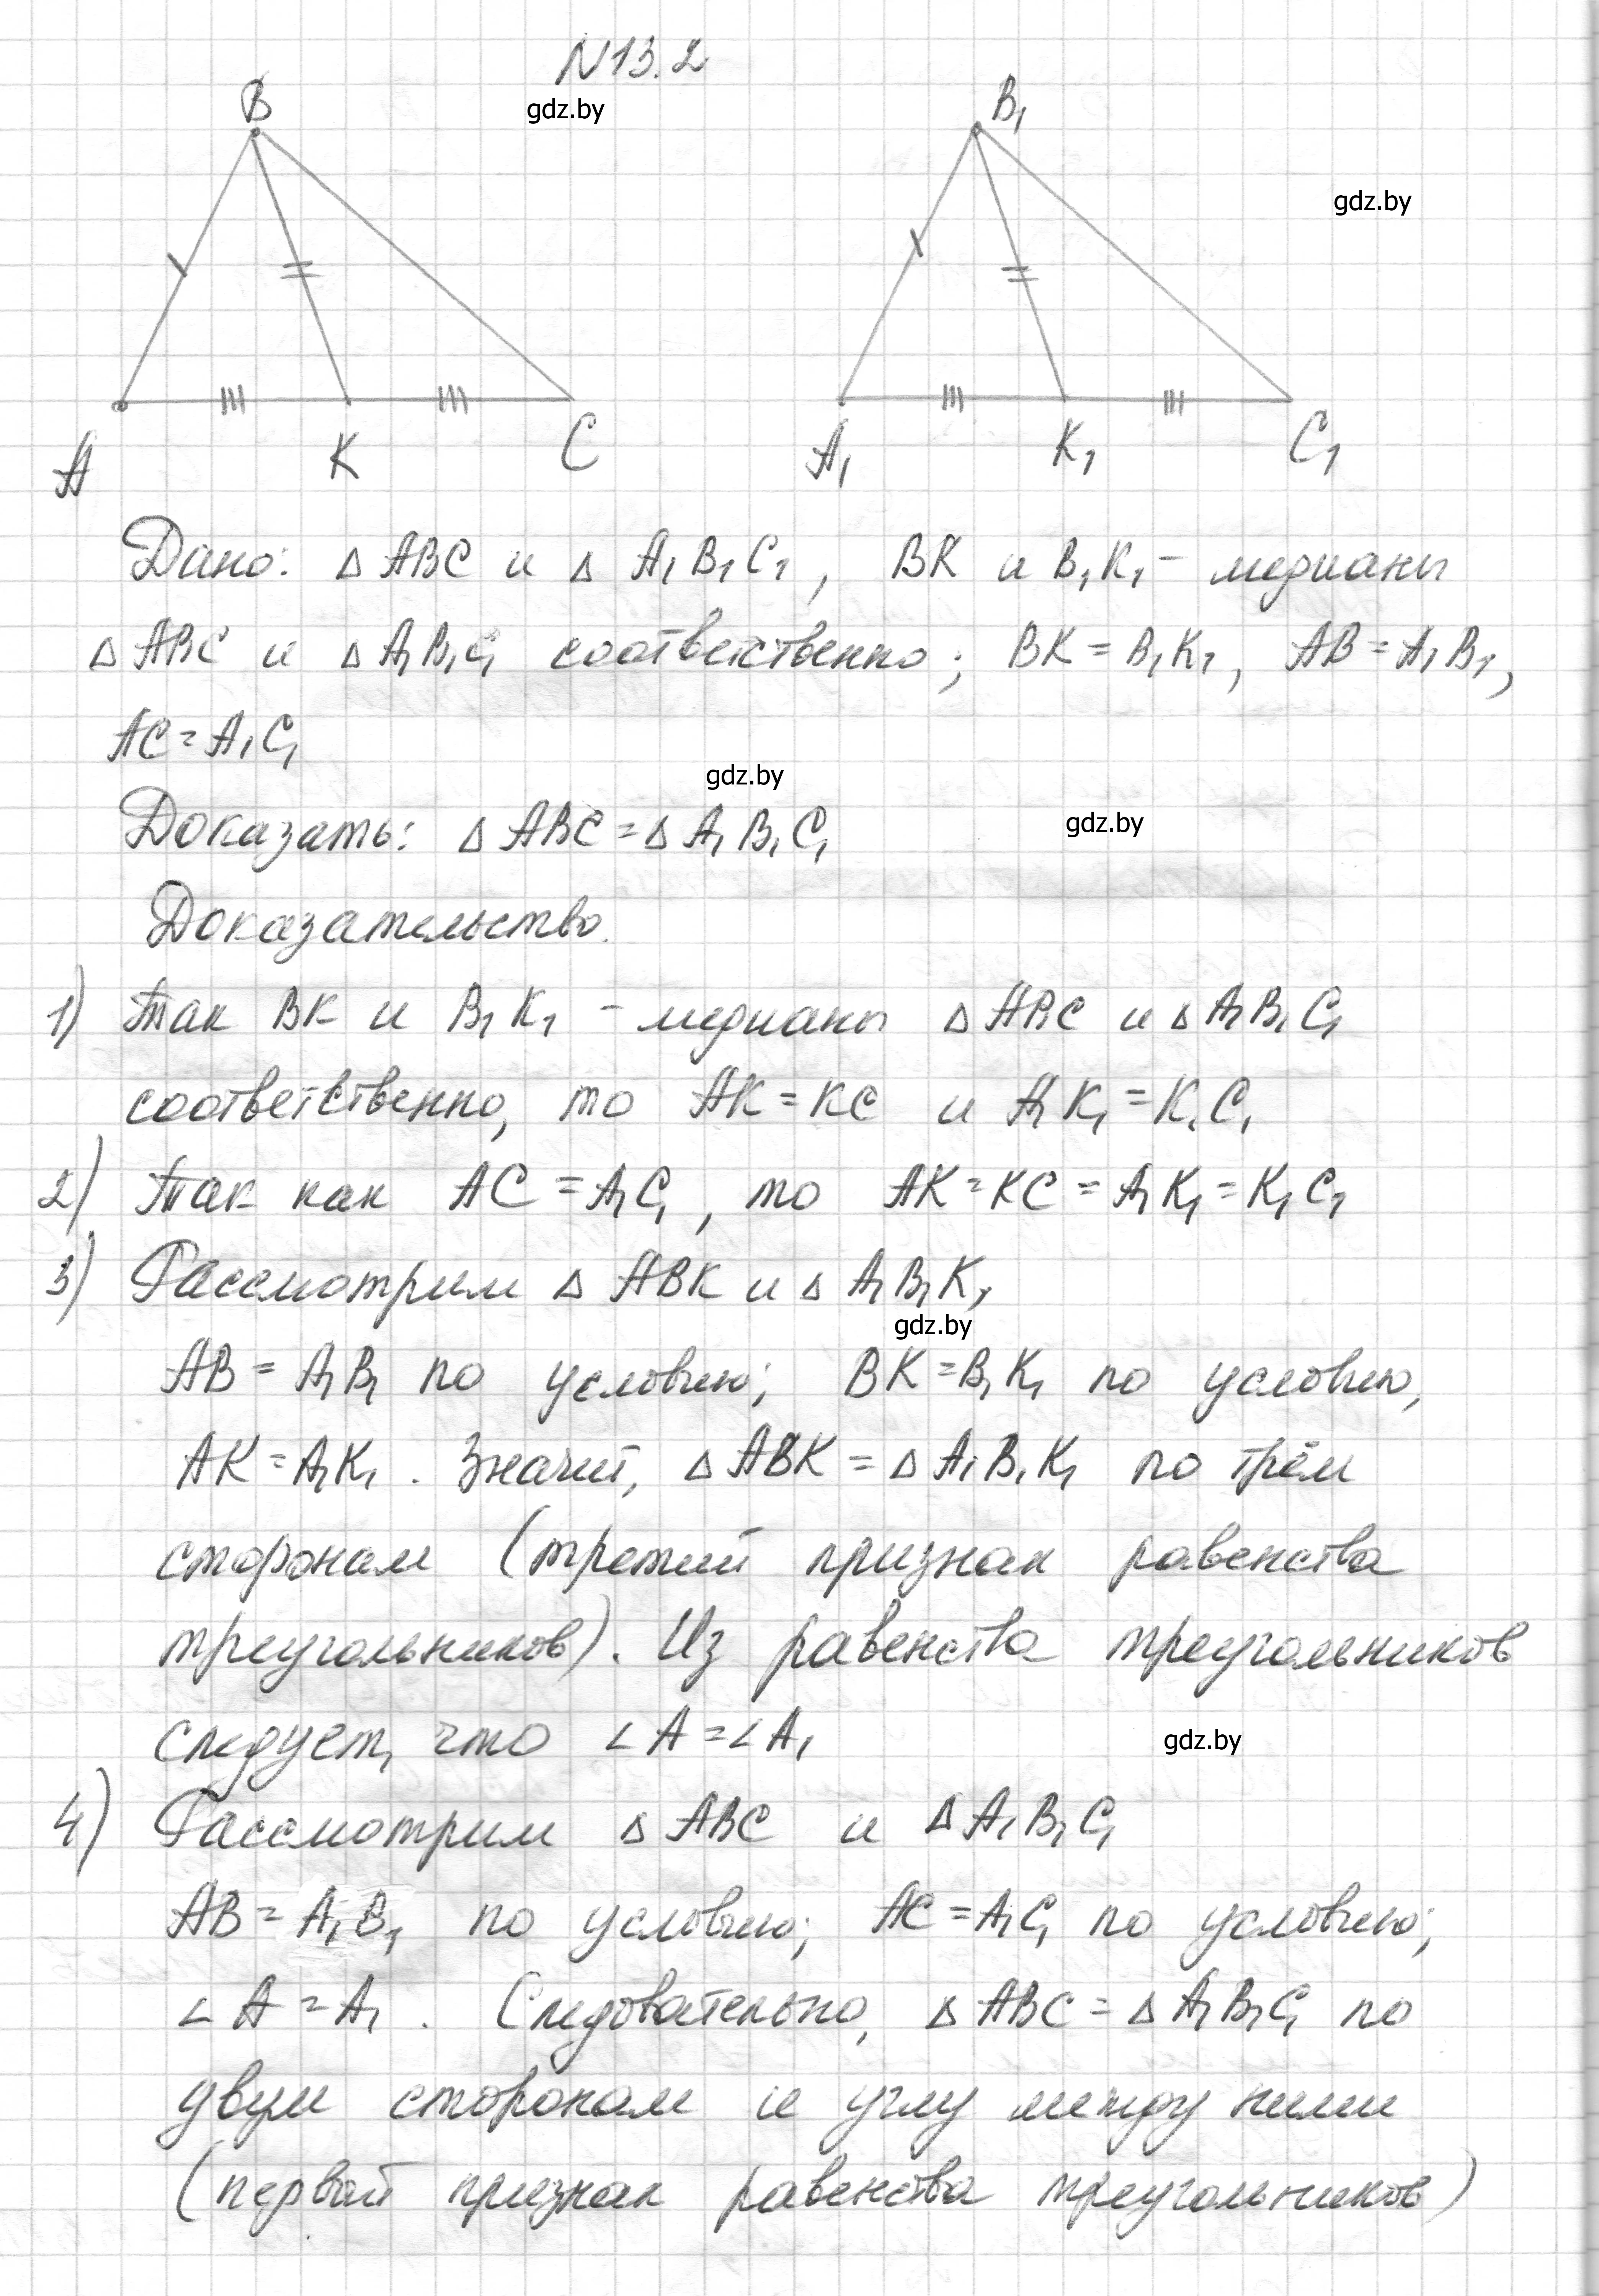 N13.2
gdz.by
B
B₁
gdz.by
A
K
C
A₁
K₁
C₁
Дано: Δ ABC и Δ A₁B₁C₁, BK и B₁K₁ - медианы
Δ ABC и Δ A₁B₁C₁ соответственно; BK = B₁K₁, AB = A₁B₁,
AC = A₁C₁
gdz.by
Доказать: Δ ABC = Δ A₁B₁C₁
gdz.by
Доказательство.
1) Так BK и B₁K₁ - медианы Δ ABC и Δ A₁B₁C₁
соответственно, то AK = KC и A₁K₁ = K₁C₁
2) Так как AC = A₁C₁, то AK = KC = A₁K₁ = K₁C₁
3) Рассмотрим Δ ABK и Δ A₁B₁K₁
gdz.by
AB = A₁B₁ по условию; BK = B₁K₁ по условию,
AK = A₁K₁. Значит, Δ ABK = Δ A₁B₁K₁ по трём
сторонам (третий признак равенства
треугольников). Из равенства треугольников
следует, что ∠A = ∠A₁
gdz.by
4) Рассмотрим Δ ABC и Δ A₁B₁C₁
AB = A₁B₁ по условию; AC = A₁C₁ по условию;
∠A = A₁. Следовательно, Δ ABC = Δ A₁B₁C₁ по
двум сторонам и углу между ними
(первый признак равенства треугольников)